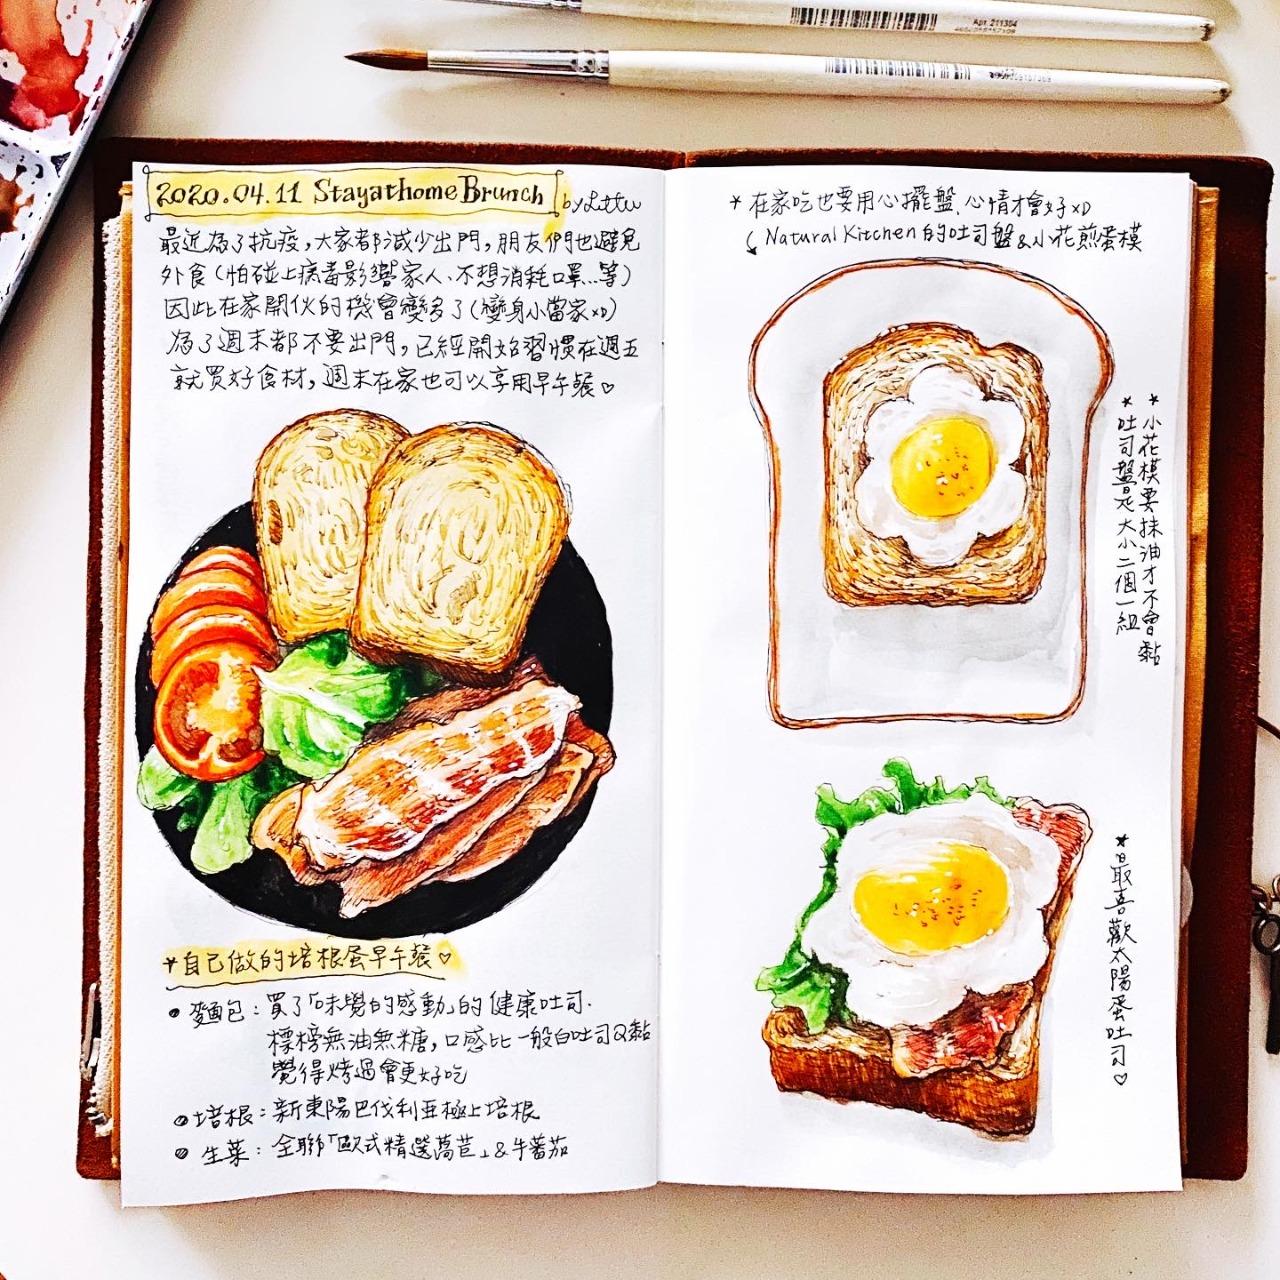 Арт. 211304
2020.04.11 Stayathome Brunch
最近為了抗疫，大家都減少出門，朋友們也避免
外食（怕碰上病毒影響家人、不想消耗口罩...等）
因此在家開伙的機會變多了（變身小當家xD）
為了週末都不要出門，已經開始習慣在週五
就買好食材，週末在家也可以享用早午餐♡
*自己做的培根蛋早午餐♡
• 麵包：買了「味覺的感動」的健康吐司.
標榜無油無糖，口感比一般白吐司Q黏
覺得烤過會更好吃
• 培根：新東陽巴伐利亞極上培根
• 生菜：全聯「歐式精選萵苣」&牛蕃茄
* 在家吃也要用心擺盤、心情才會好xD
Natural Kitchen的吐司盤&小花煎蛋模
*小花模要抹油才不會黏
*吐司盤是大小二個一組
*最喜歡太陽蛋吐司♡